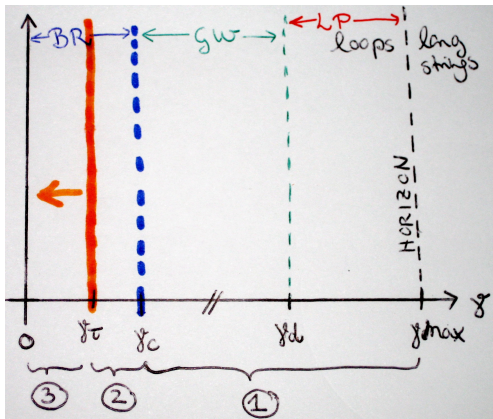 BR GW LP
loops long
strings
HORIZON
0 γτ γc γd γmax γ
③ ② ①